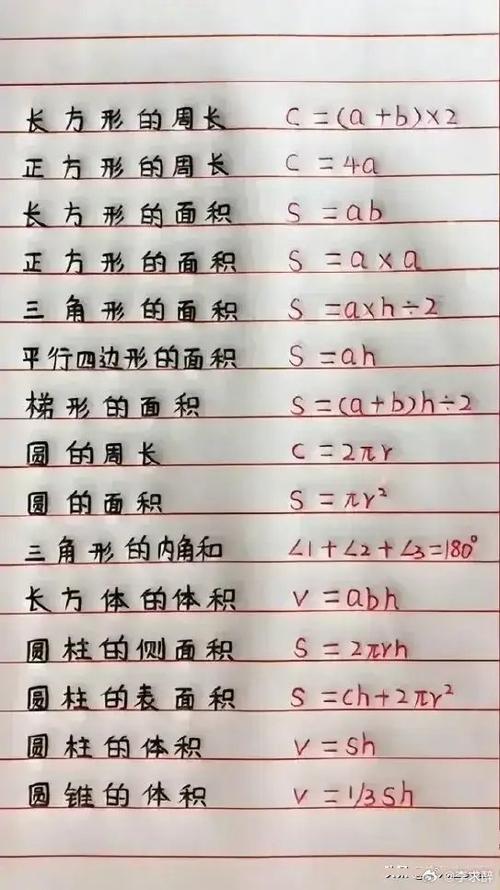 长方形的周长 C=(a+b)×2
正方形的周长 C=4a
长方形的面积 S=ab
正方形的面积 S=a×a
三角形的面积 S=a×h÷2
平行四边形的面积 S=ah
梯形的面积 S=(a+b)h÷2
圆的周长 C=2πr
圆的面积 S=πr²
三角形的内角和 ∠1+∠2+∠3=180°
长方体的体积 V=abh
圆柱的侧面积 S=2πrh
圆柱的表面积 S=Ch+2πr²
圆柱的体积 V=Sh
圆锥的体积 V=1/3Sh
@李求辞